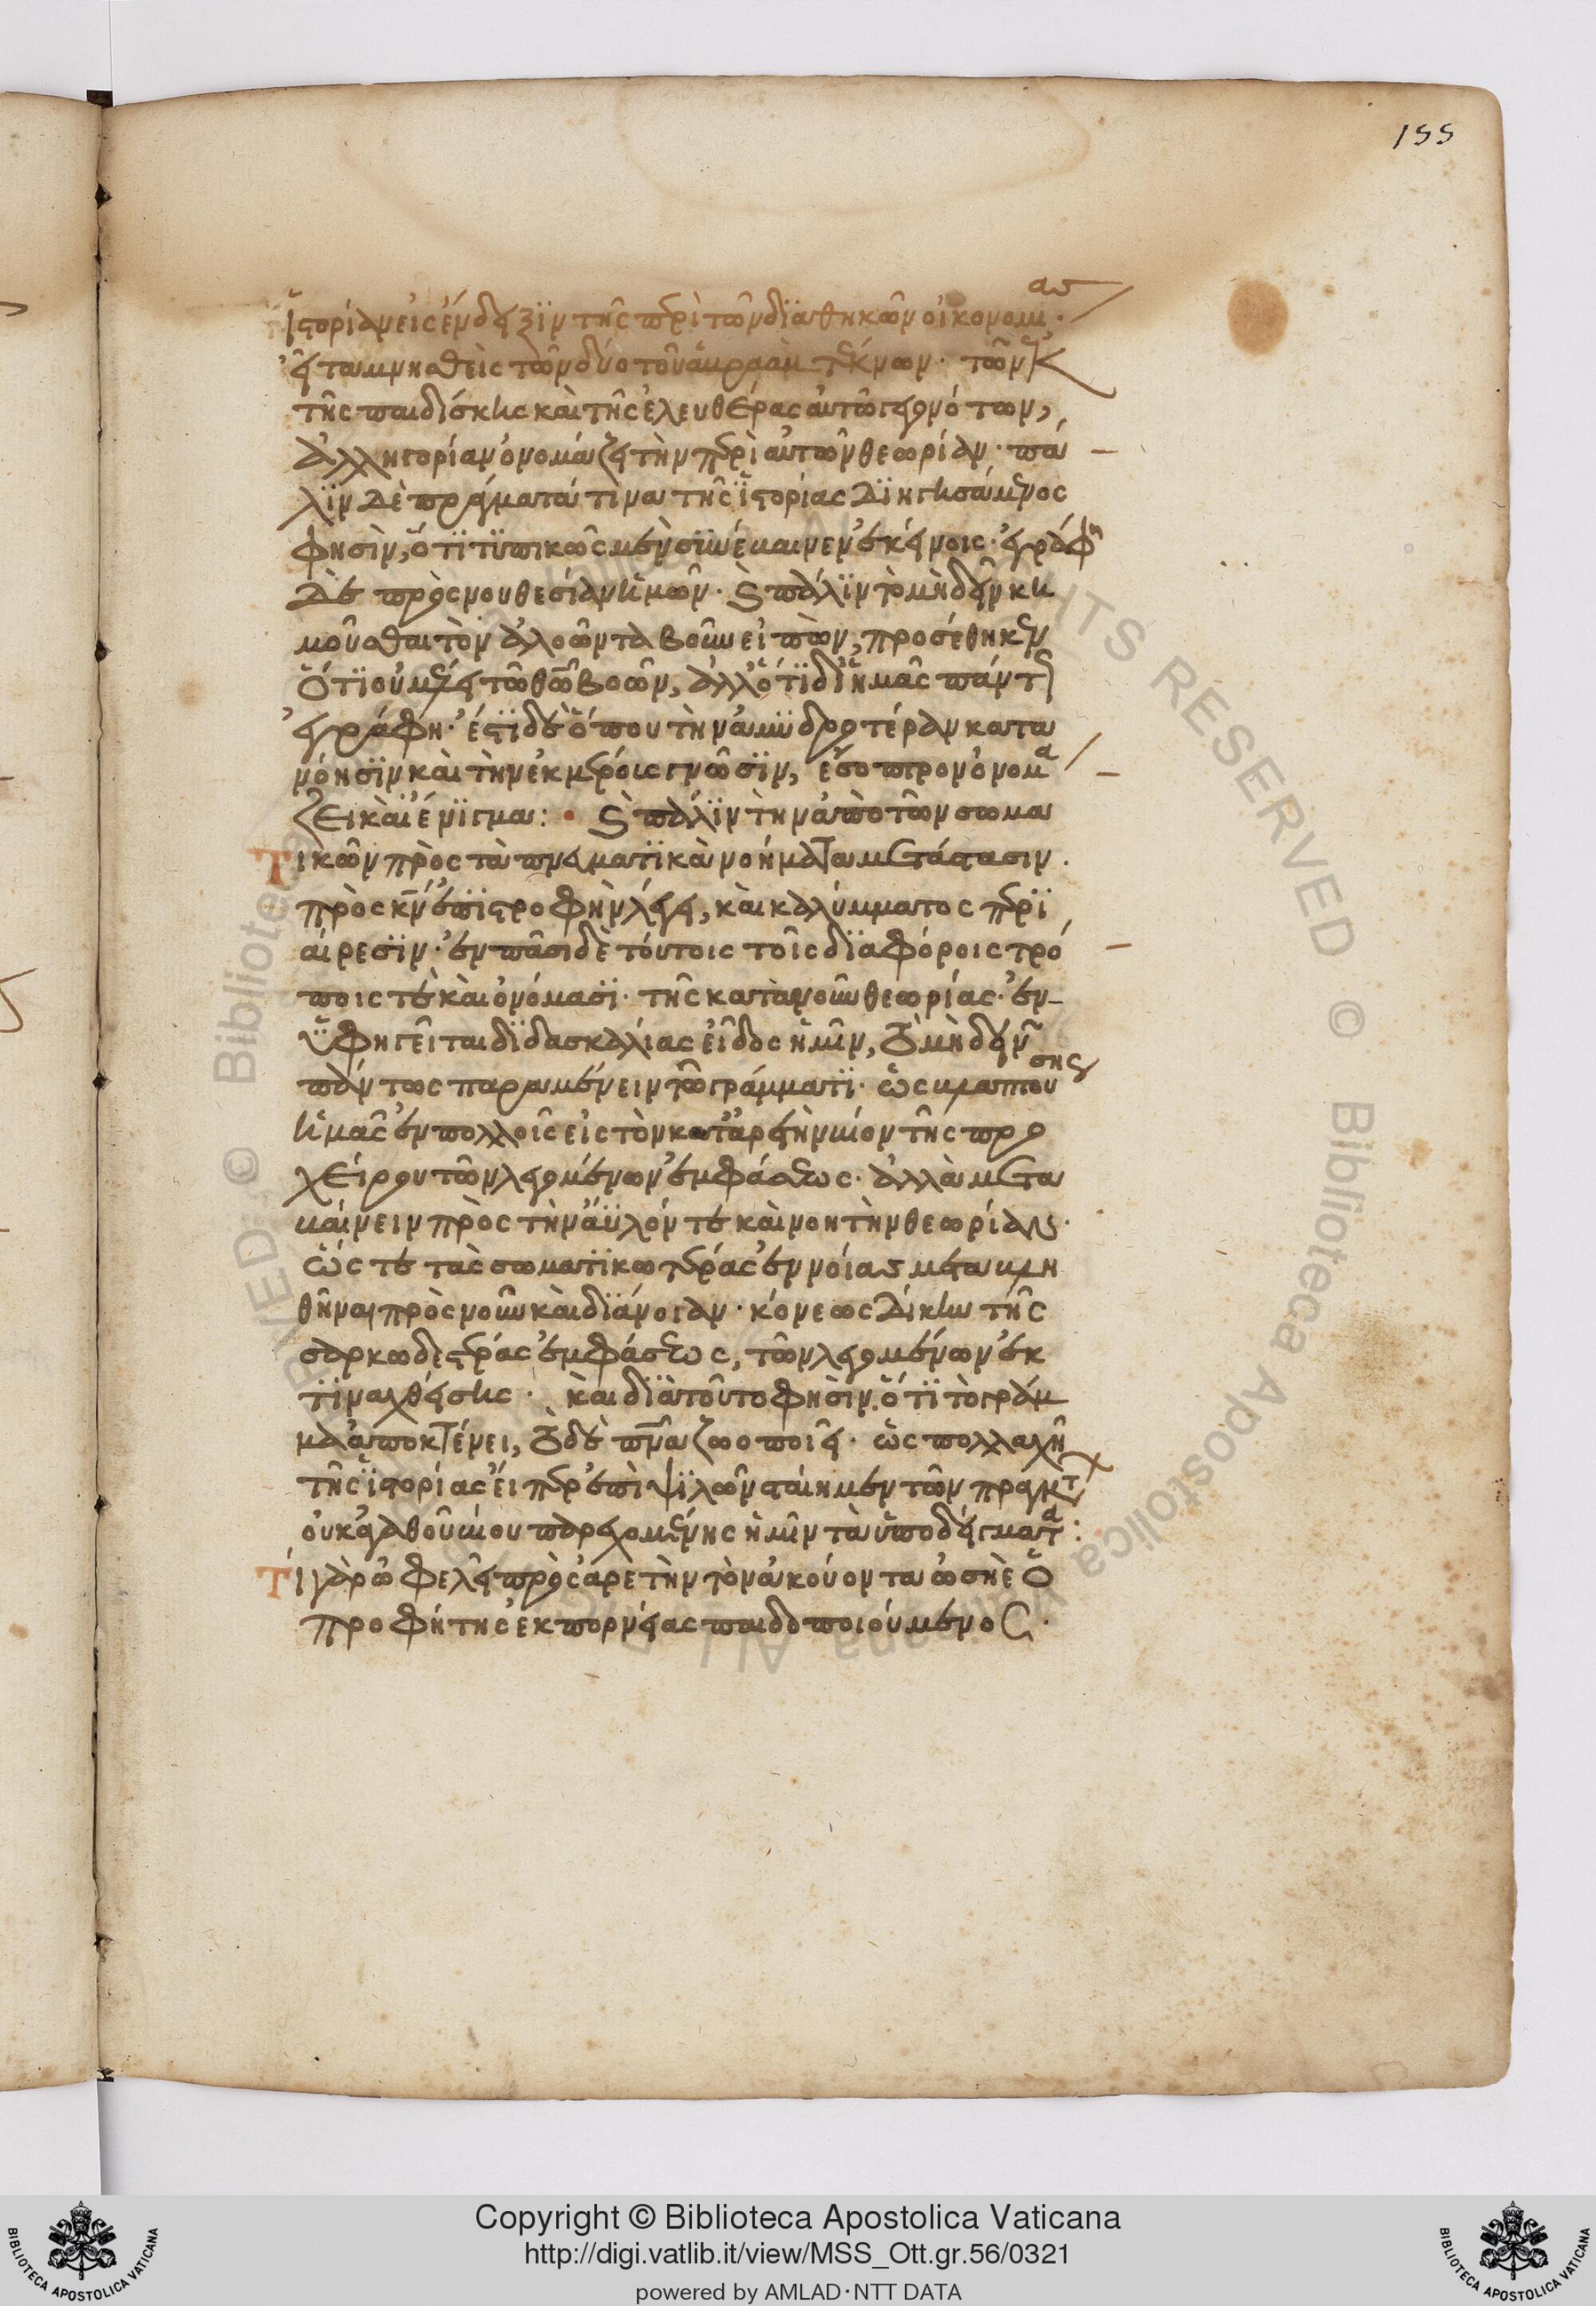 155
ἱστορίαν εἰς ἔνδειξιν τῆς περὶ τῶν διαθηκῶν οἰκονομίας·
εἶτα μνησθεὶς τῶν δύο τοῦ ἀβραὰμ τέκνων· τῶν ἐκ
τῆς παιδίσκης καὶ τῆς ἐλευθέρας αὐτῶ γεγονότων,
ἀλληγορίαν ὀνομάζει τὴν περὶ αὐτῶν θεωρίαν· πά
λϊν δὲ πράγματά τινα τῆς ἱστορίας διηγησάμενος
φησὶν, ὅτι τυπικῶς μὲν συνέβαινεν ἐκείνοις· ἐγράφη
δὲ πρὸς νουθεσίαν ἡμῶν· καὶ πάλιν τὸ μὴ δεῖν κη
μοῦσθαι τὸν ἀλοῶντα βοῦν εἰπὼν, προσέθηκεν
ὅτι οὐ μέλει τῶ θῶ βοῶν, ἀλλ' ὅτι δι' ἡμᾶς πάντως
ἐγράφη· ἔστι δὲ ὅπου τὴν ἀμυδροτέραν κατα
νόησιν καὶ τὴν ἐκ μέροις γνῶσιν, ἔσοπτρον ὀνομά
ζει καὶ αἴνιγμα: • καὶ πάλιν τὴν ἀπὸ τῶν σωμα
τικῶν πρὸς τὰ πνευματικὰ νοήματα μετάστασιν·
πρὸς κν ἐπιστροφὴν λέγει, καὶ καλύμματος περι
αίρεσιν· ἐν πᾶσι δὲ τούτοις τοῖς διαφόροις τρό
ποις τὲ καὶ ὀνόμασι· τῆς κατὰ νοῦν θεωρίας· ἐν
ὑφηγεῖται διδασκαλίας εἶδος ἡμῖν, τὸ μὴ δεῖν
πάντως παραμένειν τῶ γράμματι· ὡς βλαπτούσης
ἡμᾶς ἐν πολλοῖς εἰς τὸν κατ' ἀρετὴν βίον τῆς προ
χείρου τῶν λεγομένων ἐμφάσεως· ἀλλὰ μετα
βαίνειν πρὸς τὴν ἄϋλόν τε καὶ νοητὴν θεωρίαν·
ὥς τε τὰς σωματικωτέρας ἐννοίας μεταβλη
θῆναι πρὸς νοῦν καὶ διάνοιαν· κόνεως δίκην τῆς
σαρκωδεστέρας ἐμφάσεως, τῶν λεγομένων ἐκ
τιναχθείσης· καὶ διὰ τοῦτο φησὶν ὅτι τὸ γράμ
μα ἀποκτένει, τὸ δὲ πνα ζωοποιεῖ· ὡς πολλαχῆ
τῆς ἱστορίας εἴπερ ἐπὶ ψιλῶν σταίημεν τῶν πραγμάτων
οὐκ ἀγαθοῦ βίου παρεχομένης ἡμῖν τὰ ὑποδείγματα:
Τί γὰρ ὠφελεῖ πρὸς ἀρετὴν τὸν ἀκούοντα ὠσηὲ ὁ
προφήτης ἐκ πορνείας παιδοποιούμενος·
Copyright © Biblioteca Apostolica Vaticana
http://digi.vatlib.it/view/MSS_Ott.gr.56/0321
powered by AMLAD·NTT DATA